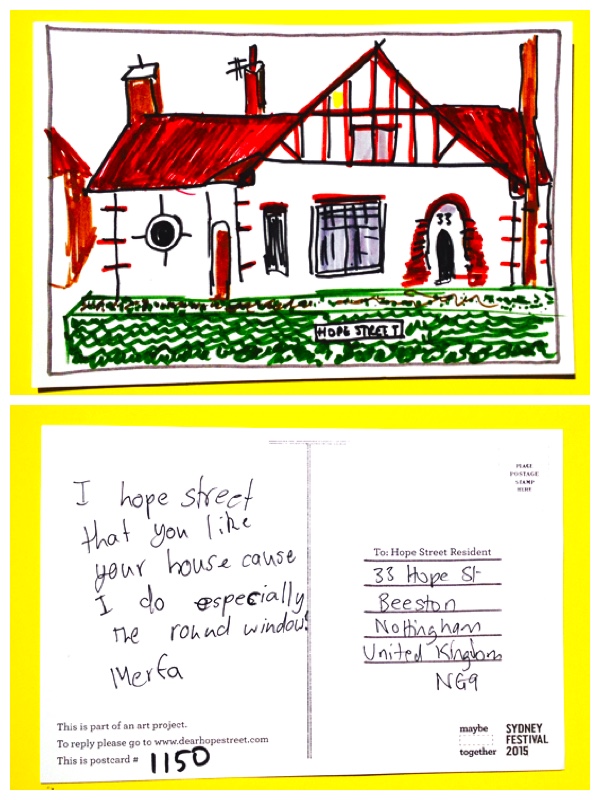 33
HOPE STREET
I hope street
that you like
your house cause
I do especially
the round window!
Merfa
This is part of an art project.
To reply please go to www.dearhopestreet.com
This is postcard # 1150
PLACE
POSTAGE
STAMP
HERE
To: Hope Street Resident
33 Hope St
Beeston
Nottingham
United Kingdom
NG9
maybe
together
SYDNEY
FESTIVAL
2015